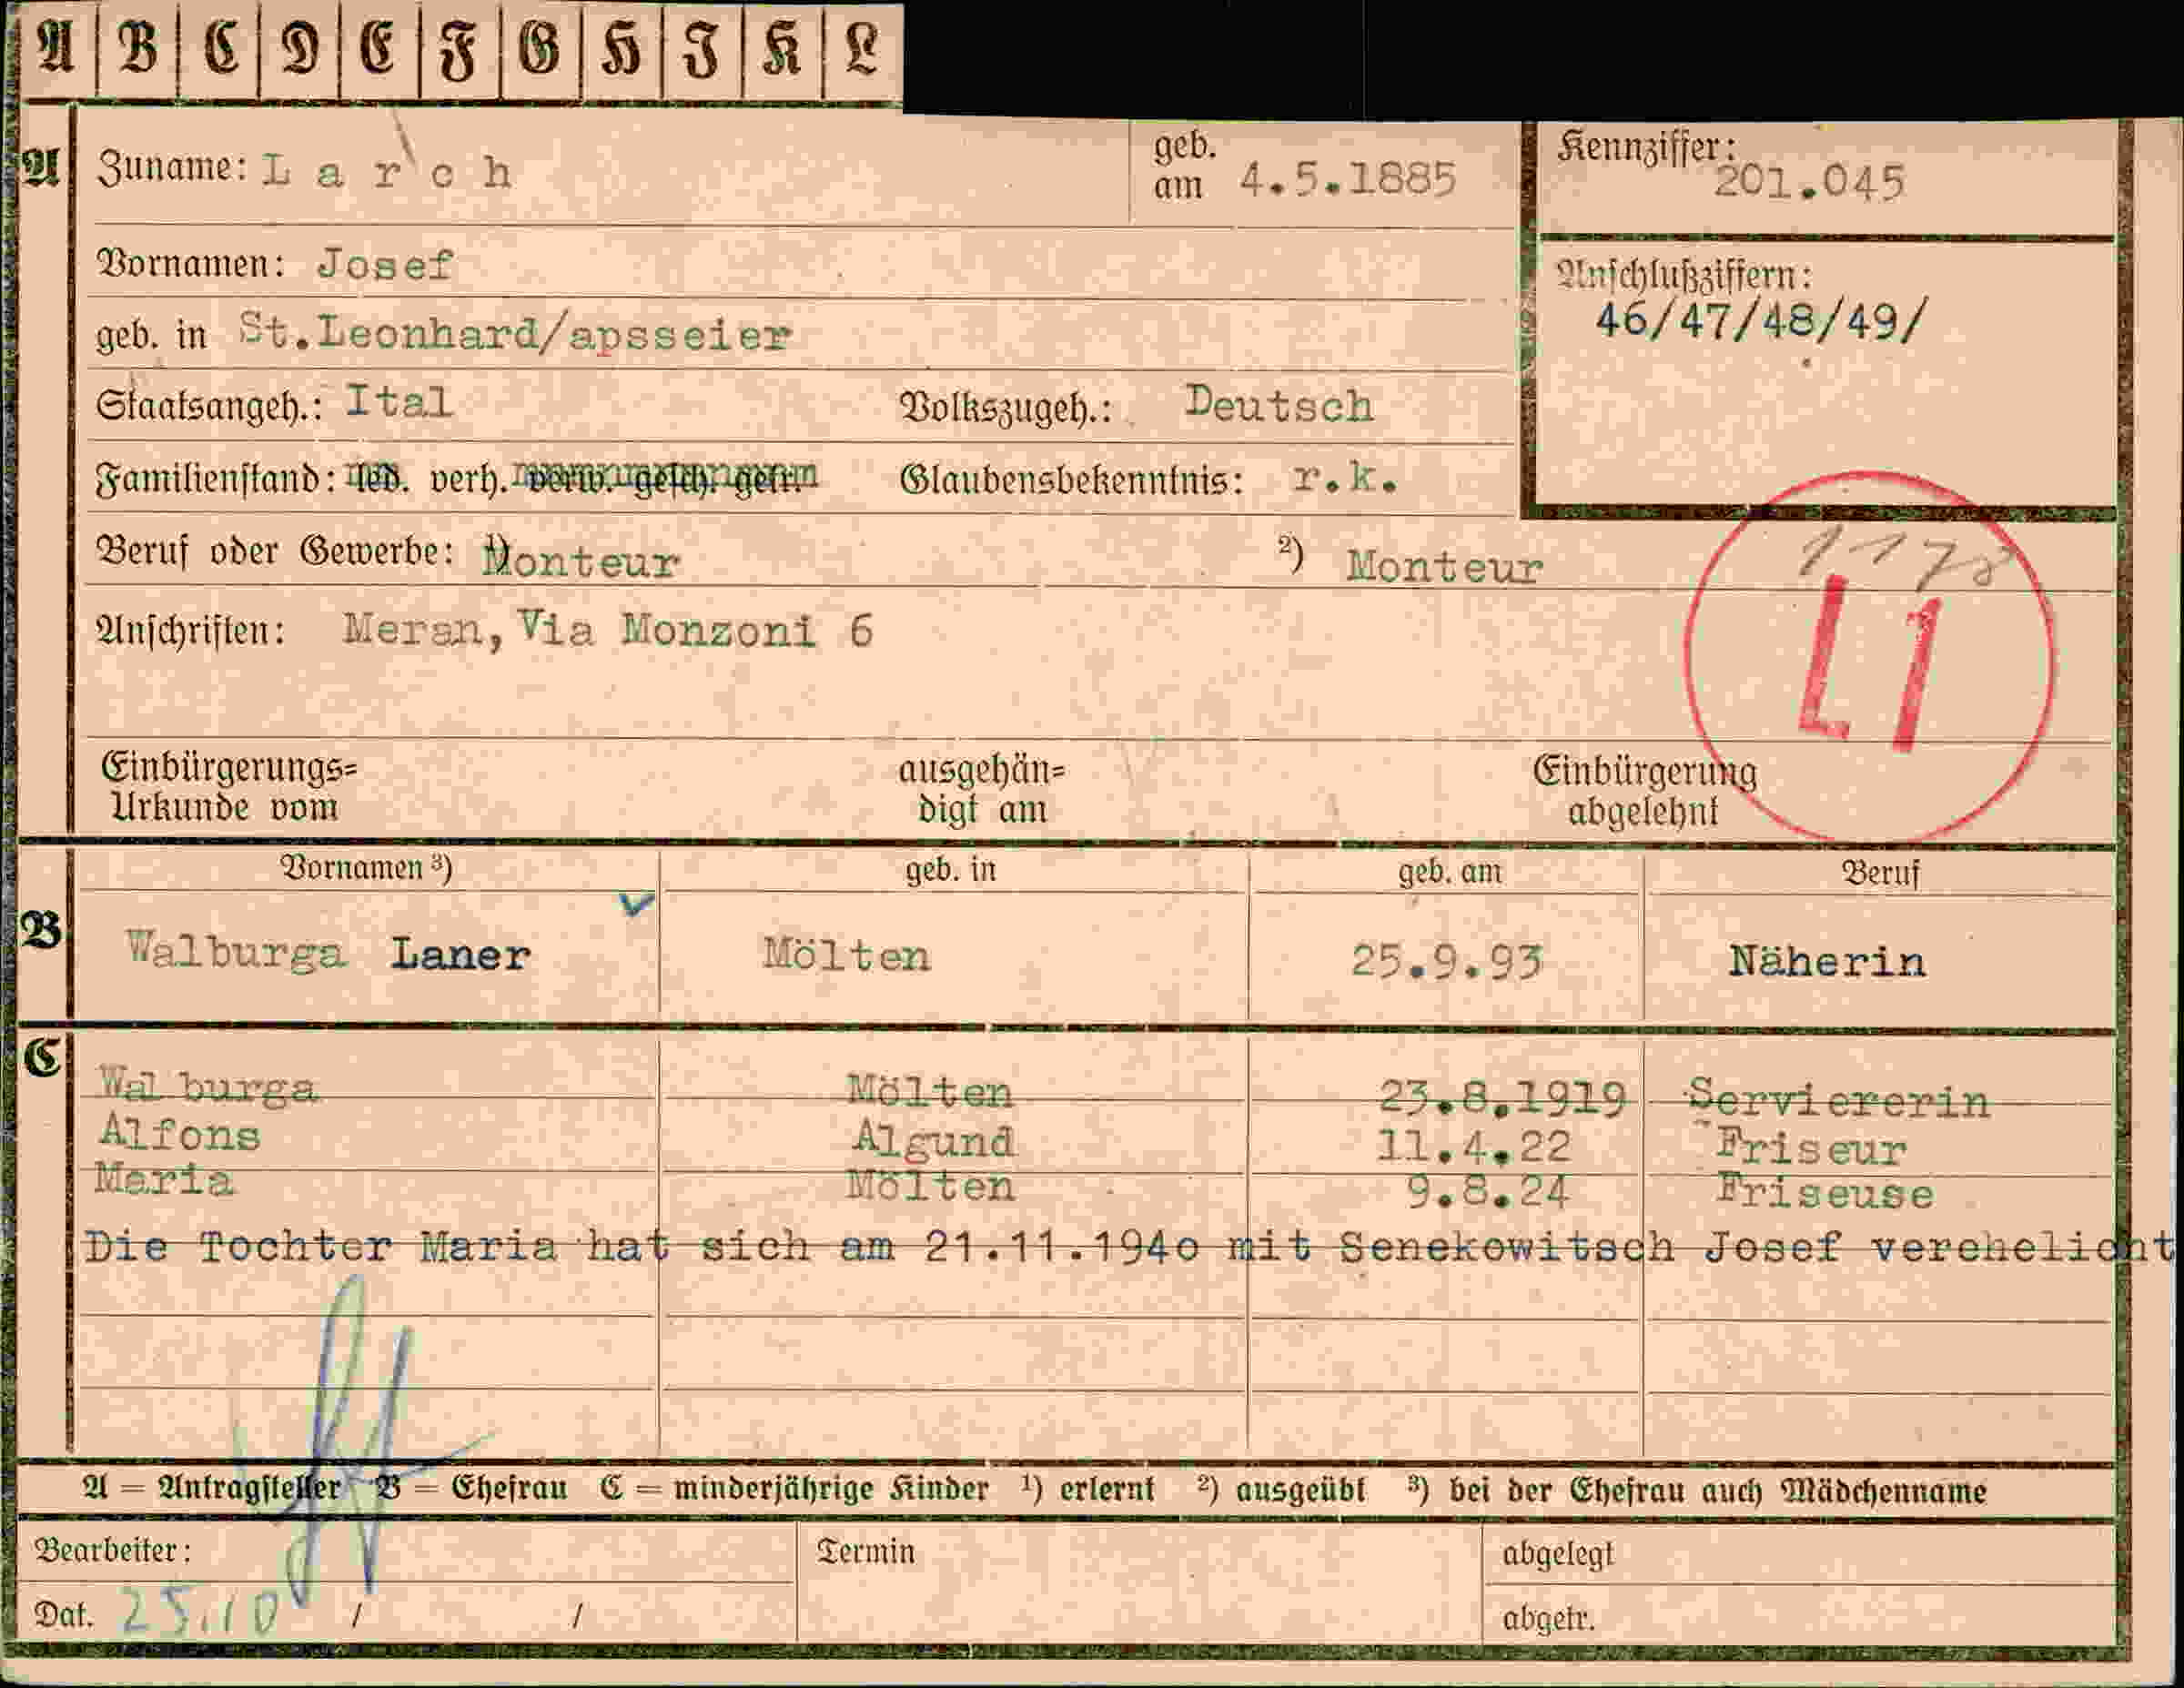 A B C D E F G H I K L
A Zuname: L a r c h geb. am 4.5.1885 Kennziffer: 201.045
Vornamen: Josef
Anschlußziffern:
46/47/48/49/
geb. in St.Leonhard/apsseier
Staatsangeh.: Ital Volkszugeh.: Deutsch
Familienstand: led. verh. verw. gesch. getr. Glaubensbekenntnis: r.k.
Beruf oder Gewerbe: 1) Monteur 2) Monteur
L1
Anschriften: Meran, Via Monzoni 6
Einbürgerungs= ausgehän= Einbürgerung
Urkunde vom digt am abgelehnt
Vornamen ³) geb. in geb. am Beruf
B Walburga Laner Mölten 25.9.93 Näherin
C
Walburga Mölten 23.8.1919 Serviererin
Alfons Algund 11.4.22 Friseur
Maria Mölten 9.8.24 Friseuse
Die Tochter Maria hat sich am 21.11.1940 mit Senekowitsch Josef verehelicht
A = Antragsteller B = Ehefrau C = minderjährige Kinder ¹) erlernt ²) ausgeübt ³) bei der Ehefrau auch Mädchenname
Bearbeiter: Termin abgelegt
Dat. 25.10 / / abgetr.